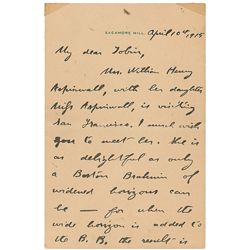 SAGAMORE HILL
April 10th 1915
My dear Tobin,
Mrs. William Henry
Aspinwall, with her daughter
Miss Aspinwall, is visiting
San Francisco. I much wish
you to meet her. She is
as delightful as only
a Boston Brahmin of
widened horizons can
be — for when the
wide horizon is added to
the B. B. the result is